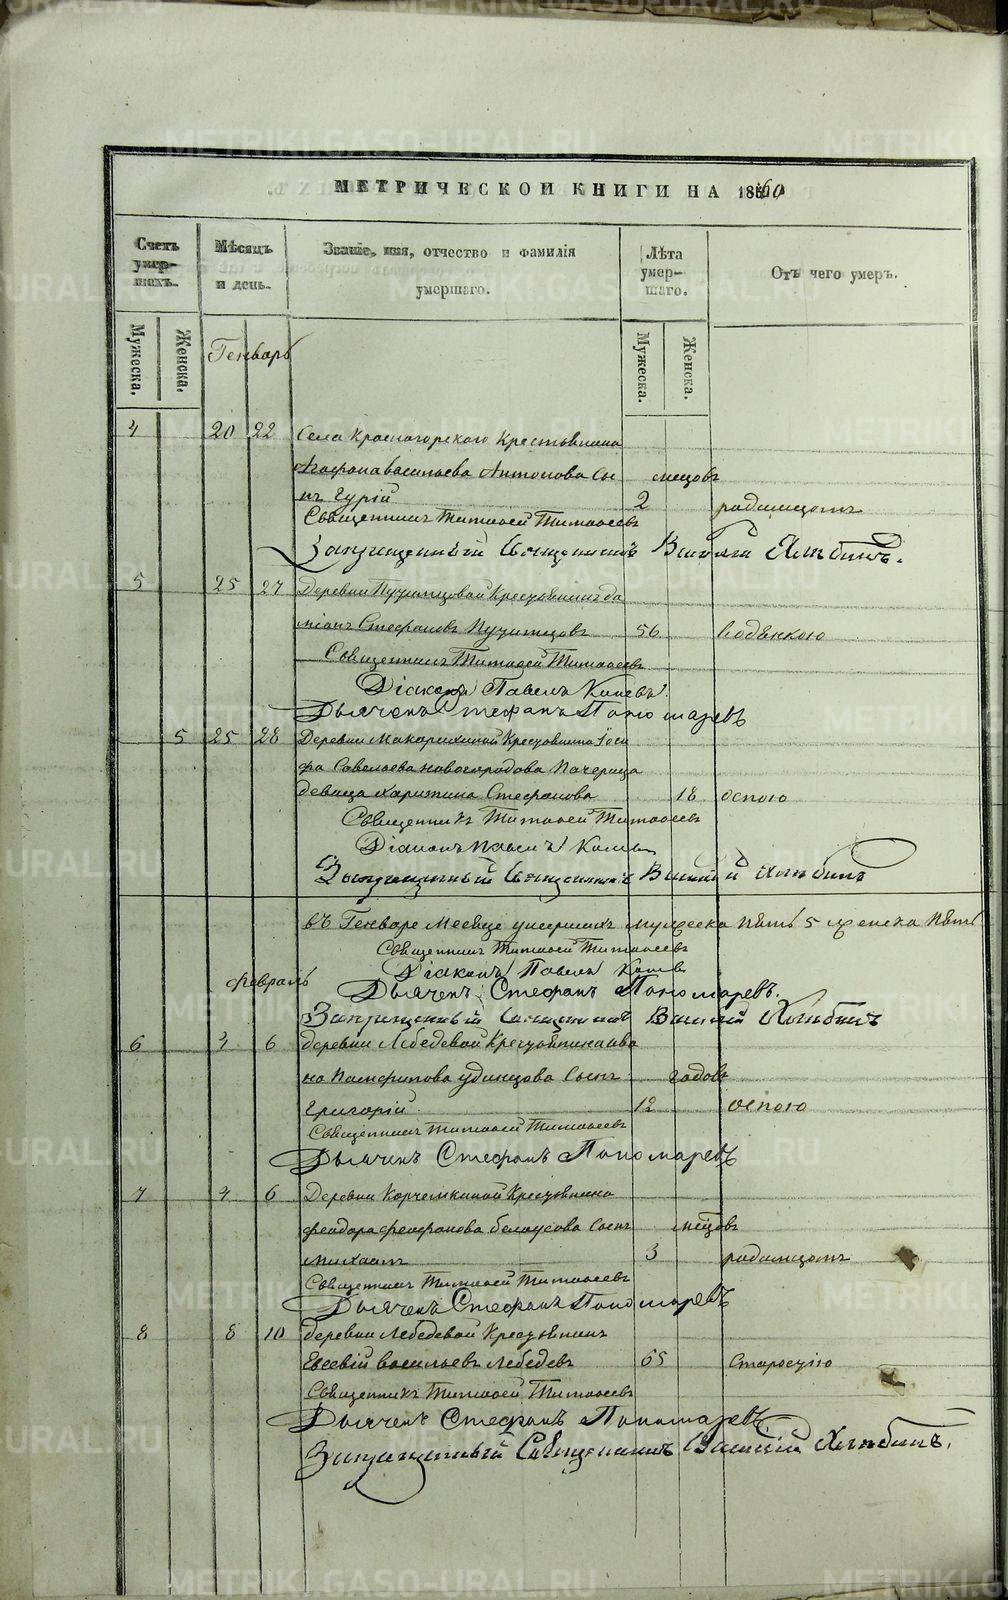 METRIKI.GASO-URAL.RU
МЕТРИЧЕСКОЙ КНИГИ НА 1860
Счетъ умер-шихъ.
Мѣсяцъ и день.
Званіе, имя, отчество и фамилія умершаго.
Лѣта умер-шаго.
Отъ чего умеръ.
Мужеска.
Женска.
Мужеска.
Женска.
Генварь
4 20 22 Села Красногорскаго Крестьянина
Агафона Васильева Антонова Сы- мецовъ
нъ Гурій 2 родимцомъ
Священникъ Тимофей Тимофеевъ
Запрещенный Священникъ Василій
5 25 27 Деревни Крестьянинъ Да
міанъ Стефановъ 56 водянкою
Священникъ Тимофей Тимофеевъ
Діаконъ Павелъ
Дьячекъ Стефанъ Пономаревъ
5 25 28 Деревни Макарихиной Крестьянина Іоси
фа Савельева Новогородова Пачерица
девица Харитина Стефанова 18 оспою
Священникъ Тимофей Тимофеевъ
Діаконъ Павелъ
Запрещенный Священникъ Василій
въ Генваре Месяце умершихъ мужеска пять 5 женска пять
Священникъ Тимофей Тимофеевъ
Діаконъ Павелъ
февраль
Дьячекъ Стефанъ Пономаревъ.
Запрещенный Священникъ Василій
6 4 6 деревни Лебедевой Крестьянина Ива
на Памфилова Удинцова Сынъ годовъ
Григорій 12 оспою
Священникъ Тимофей Тимофеевъ
Дьячекъ Стефанъ Пономаревъ
7 4 6 Деревни Корчемкиной Крестьянина
феодора феофанова белоусова Сынъ мецовъ
Михаилъ 3 родимцомъ
Священникъ Тимофей Тимофеевъ
Дьячекъ Стефанъ Пономаревъ
8 8 10 деревни Лебедевой Крестьянинъ
Евсевій Васильевъ Лебедевъ 65 Старостію
Священникъ Тимофей Тимофеевъ
Дьячекъ Стефанъ Пономаревъ
Запрещенный Священникъ Василій